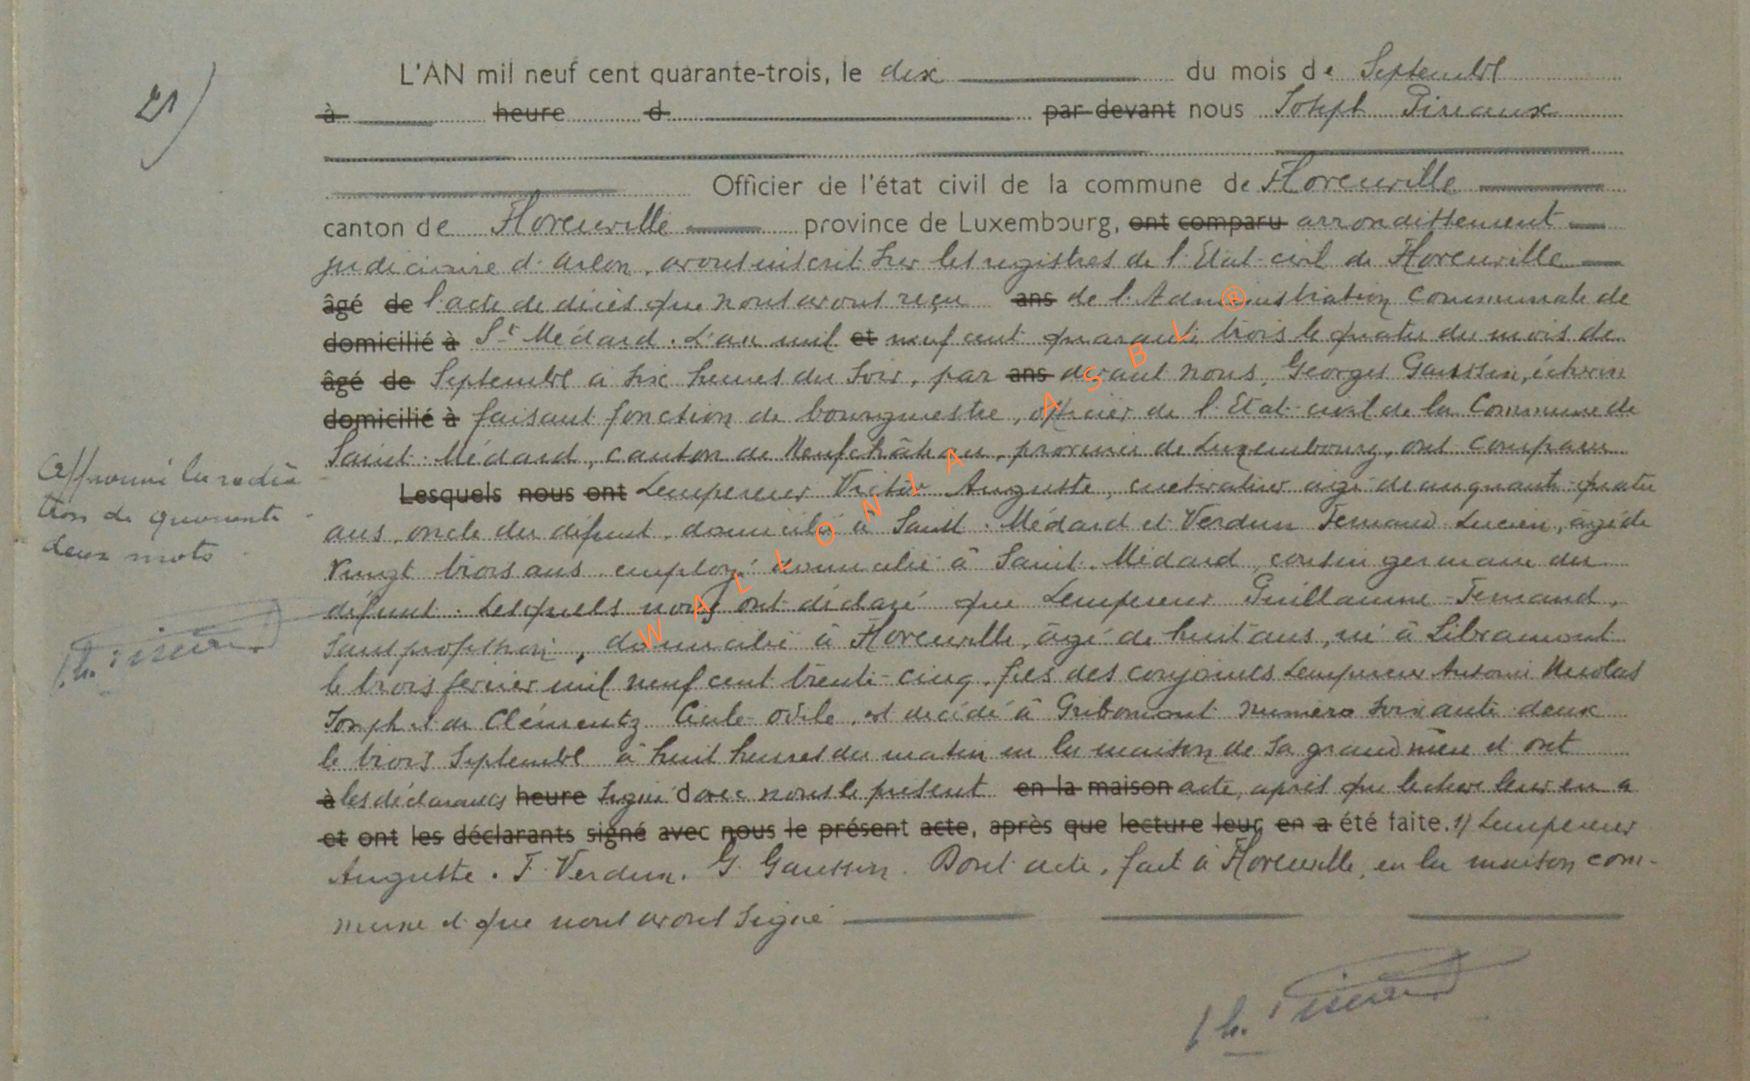 21)
L'AN mil neuf cent quarante-trois, le dix du mois de Septembre
à heure d par devant nous Joseph Pireaux
Officier de l'état civil de la commune de Florenville
canton de Florenville province de Luxembourg, ont comparu arrondissement
judiciaire d'Arlon, avons inscrit sur les registres de l'Etat-civil de Florenville
âgé de l'acte de décès que nous avons reçu ans de l'Administration Communale de
domicilié à St Médard. L'an mil et neuf cent quarante trois le quatre du mois de
âgé de Septembre à six heures du soir, par ans devant nous, Georges Gaussin, échevin
domicilié à faisant fonction de bourgmestre, officier de l'Etat-civil de la Commune de
Saint-Médard, canton de Neufchâteau, province de Luxembourg, ont comparu
Lesquels nous ont Lempereur Victor Auguste, cultivateur âgé de cinquante-quatre
ans, oncle du défunt, domicilié à Saint-Médard et Verdun Fernand Lucien, âgé de
vingt trois ans, employé domicilié à Saint-Médard, cousin germain du
défunt. Lesquels nous ont déclaré que Lempereur Guillaume-Fernand,
sans profession, domicilié à Florenville, âgé de huit ans, né à Libramont
le trois février mil neuf cent trente-cinq, fils des conjoints Lempereur Antoine Nicolas
Joseph et de Clémentz Odile, est décédé à Gribomont numéro soixante deux
le trois Septembre à huit heures du matin en la maison de sa grand mère et ont
à les déclarants heure signé d avec nous le présent en la maison acte, après que lecture leur en a
et ont les déclarants signé avec nous le présent acte, après que lecture leur en a été faite. s/ Lempereur
Auguste. F. Verdun. G. Gaussin. Dont acte, fait à Florenville, en la maison com-
mune et que nous avons signé
Approuvé la radia
tion de quarante
deux mots
WALLONIA ASBL ®